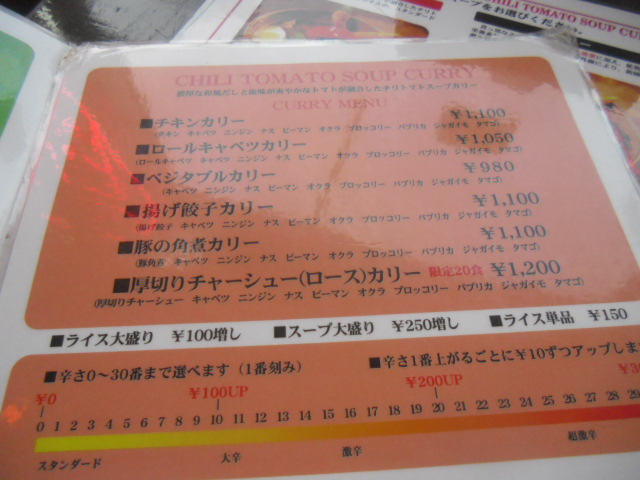 スタンダード
ープをお選びくだ
CHILI TOMATO SOUP CU
CHILI TOMATO SOUP CURRY
濃厚な和風だしと酸味が爽やかなトマトが融合したチリトマトスープカリー
CURRY MENU
■チキンカリー ¥1,100
(チキン キャベツ ニンジン ナス ピーマン オクラ ブロッコリー パプリカ ジャガイモ タマゴ)
■ロールキャベツカリー ¥1,050
(ロールキャベツ キャベツ ニンジン ナス ピーマン オクラ ブロッコリー パプリカ ジャガイモ タマゴ)
■ベジタブルカリー ¥980
(キャベツ ニンジン ナス ピーマン オクラ ブロッコリー パプリカ ジャガイモ タマゴ)
■揚げ餃子カリー ¥1,100
(揚げ餃子 キャベツ ニンジン ナス ピーマン オクラ ブロッコリー パプリカ ジャガイモ タマゴ)
■豚の角煮カリー ¥1,100
(豚角煮 キャベツ ニンジン ナス ピーマン オクラ ブロッコリー パプリカ ジャガイモ タマゴ)
■厚切りチャーシュー(ロース)カリー 限定20食 ¥1,200
(厚切りチャーシュー キャベツ ニンジン ナス ピーマン オクラ ブロッコリー パプリカ ジャガイモ タマゴ)
■ライス大盛り ¥100増し ■スープ大盛り ¥250増し ■ライス単品 ¥150
■辛さ0～30番まで選べます(1番刻み) ■辛さ1番上がるごとに¥10ずつアップしま
¥0 ¥100UP ¥200UP ¥30
0 1 2 3 4 5 6 7 8 9 10 11 12 13 14 15 16 17 18 19 20 21 22 23 24 25 26 27 28 29
スタンダード 大辛 激辛 超激辛